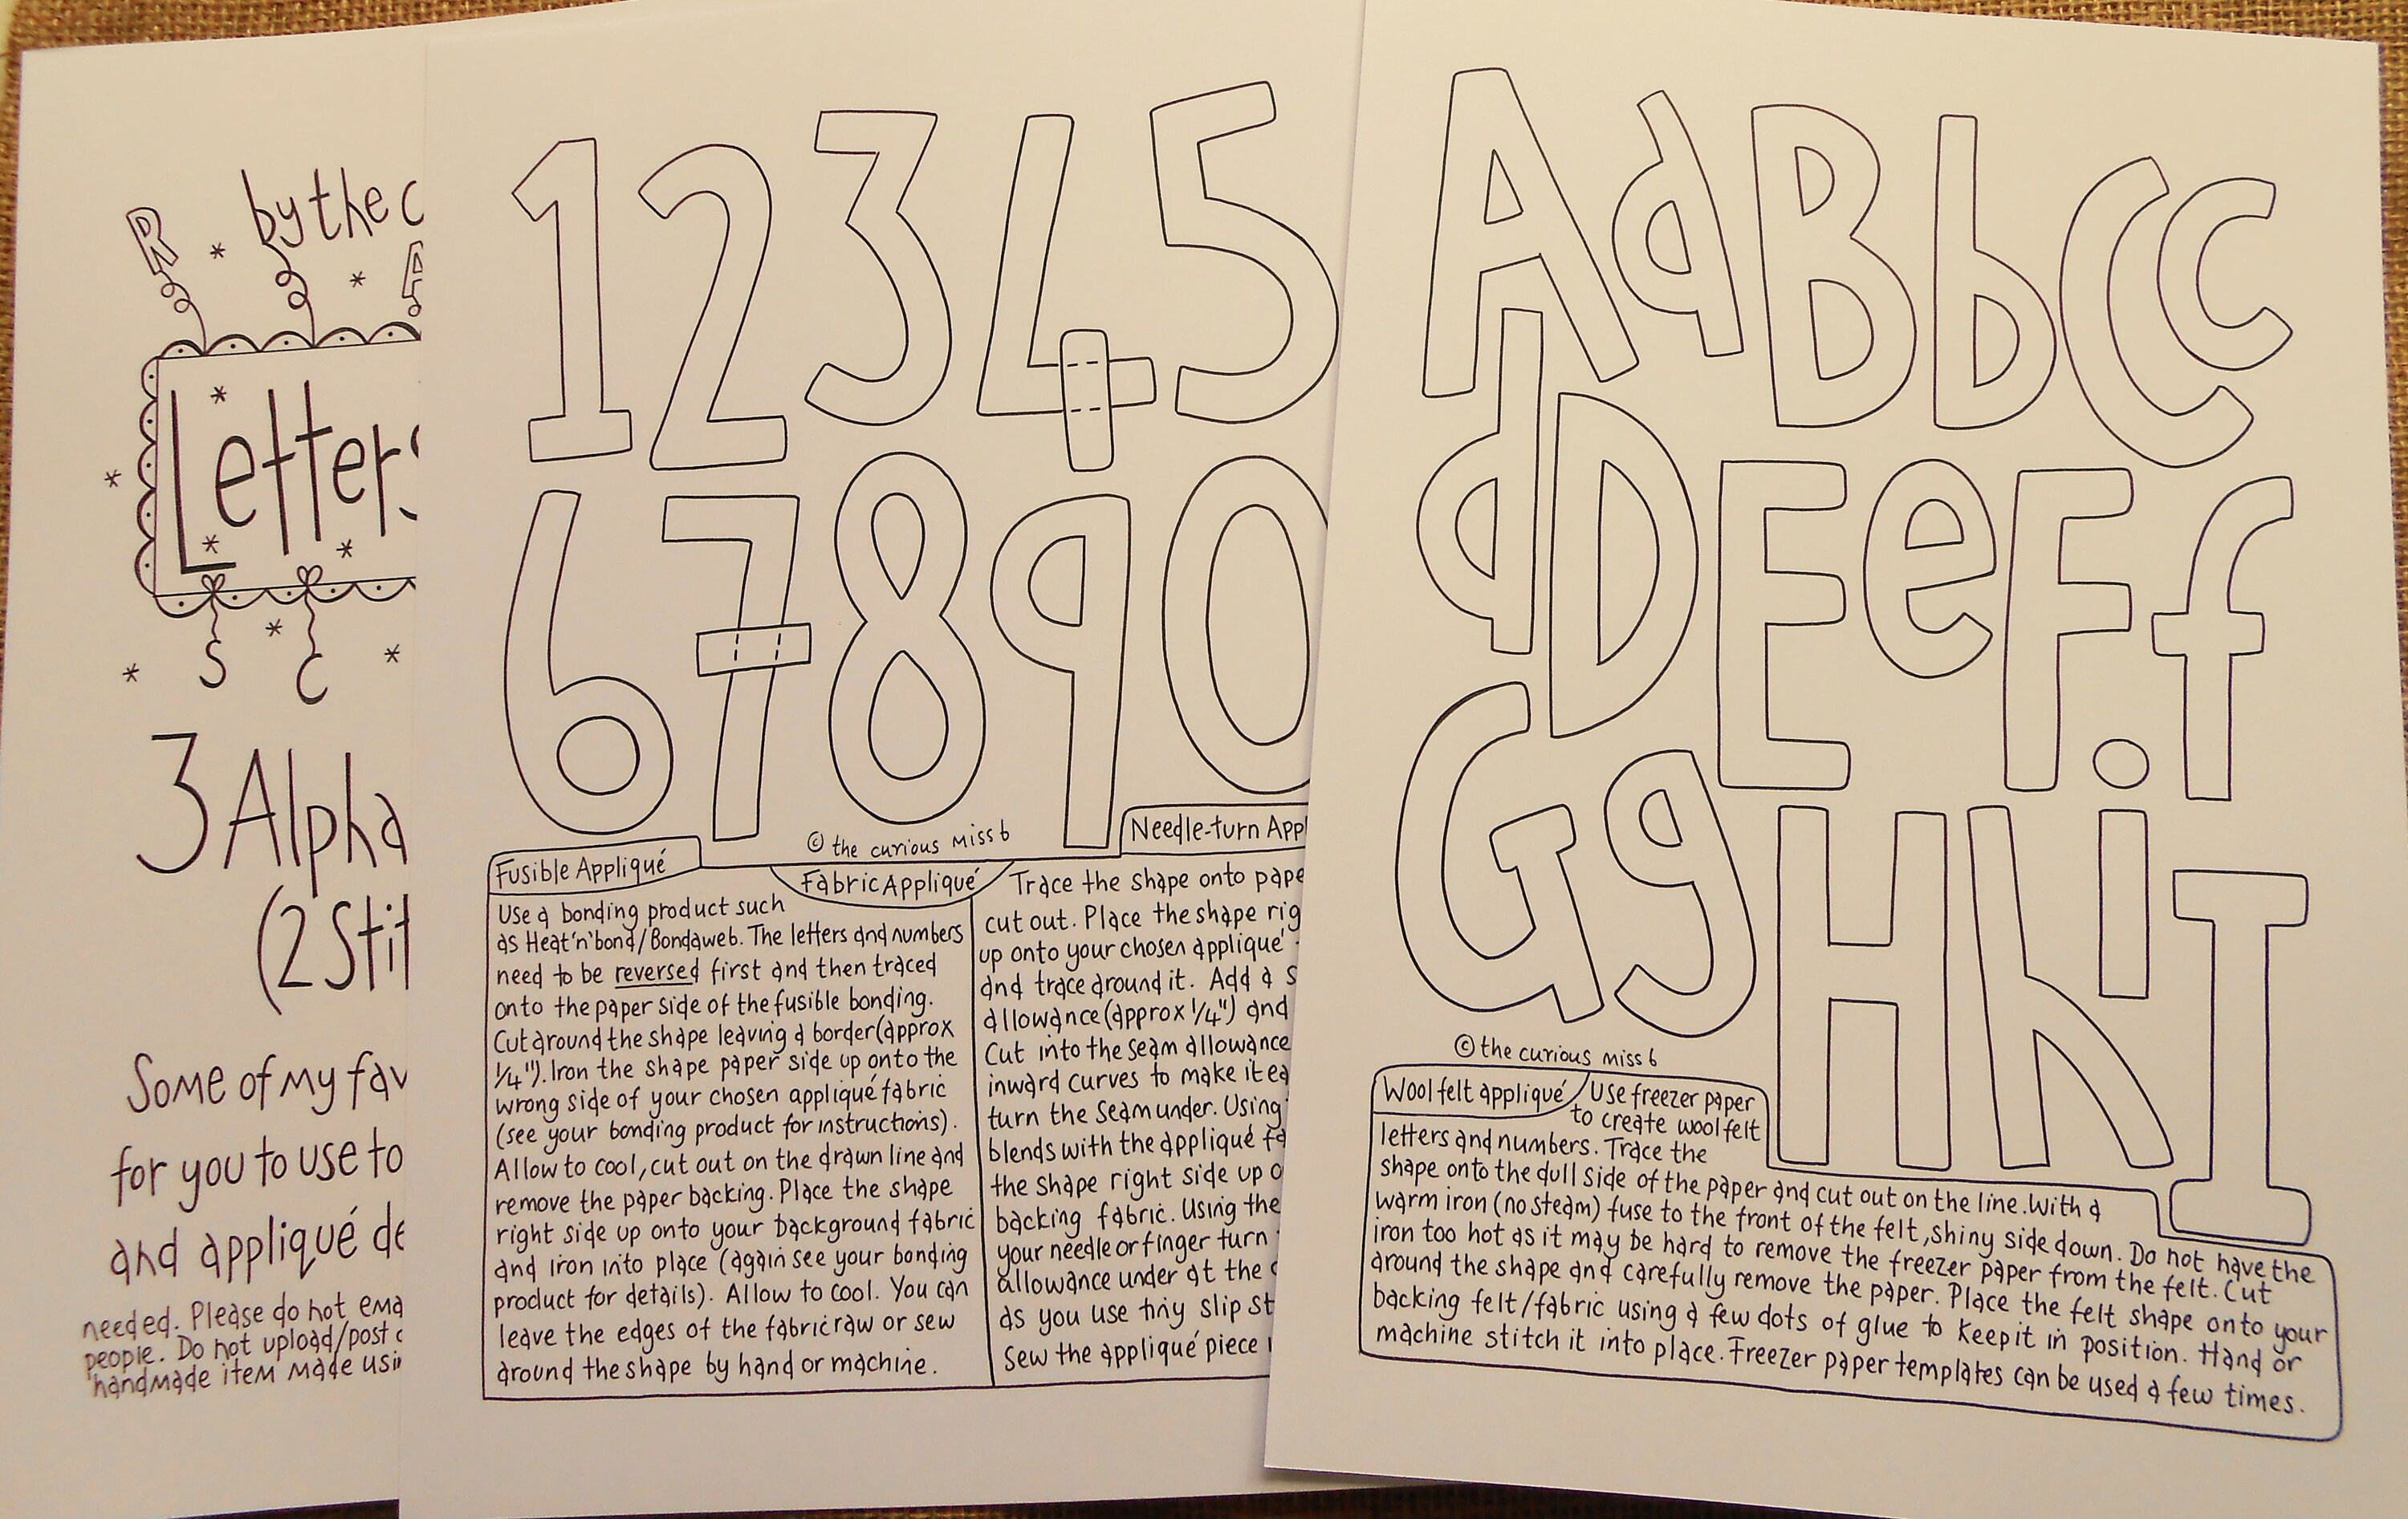 R
by the c
A
Letters
S
C
3 Alpha
(2 Stit
Some of my fav
for you to use to
and appliqué de
needed. Please do not ema
people. Do not upload/post
handmade item made usin
1 2 3 4 5
6 7 8 9 0
© the curious miss b
Fusible Appliqué
Use a bonding product such
as Heat'n'bond/Bondaweb. The letters and numbers
need to be reversed first and then traced
onto the paper side of the fusible bonding.
Cut around the shape leaving a border (approx
1/4"). Iron the shape paper side up onto the
wrong side of your chosen appliqué fabric
(see your bonding product for instructions).
Allow to cool, cut out on the drawn line and
remove the paper backing. Place the shape
right side up onto your background fabric
and iron into place (again see your bonding
product for details). Allow to cool. You can
leave the edges of the fabric raw or sew
around the shape by hand or machine.
Fabric Appliqué
Needle-turn App
Trace the shape onto pape
cut out. Place the shape rig
up onto your chosen appliqué
and trace around it. Add a s
allowance (approx 1/4") and
Cut into the seam allowance
inward curves to make it ea
turn the seam under. Using
blends with the appliqué fa
the shape right side up o
backing fabric. Using the
your needle or finger turn
allowance under at the
as you use tiny slip st
Sew the appliqué piece
A a B b C c
d D E e F f
G g H h i I
© the curious miss b
Wool felt appliqué
Use freezer paper
to create wool felt
letters and numbers. Trace the
shape onto the dull side of the paper and cut out on the line. With a
warm iron (no steam) fuse to the front of the felt, shiny side down. Do not have the
iron too hot as it may be hard to remove the freezer paper from the felt. Cut
around the shape and carefully remove the paper. Place the felt shape onto your
backing felt/fabric using a few dots of glue to keep it in position. Hand or
machine stitch it into place. Freezer paper templates can be used a few times.